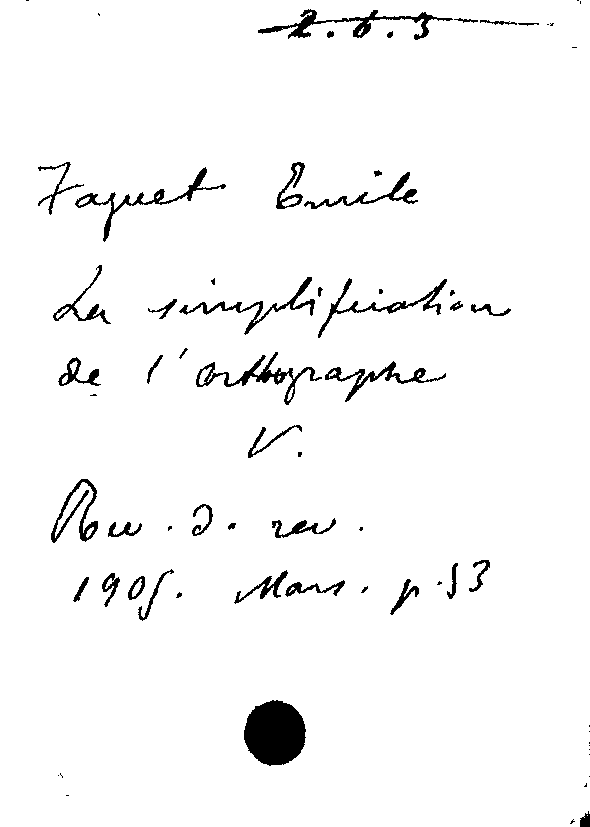 2.6.3
Faguet Emile
La simplification
de l'orthographe
V.
Rev. d. rev.
1905. Mars. p. 53